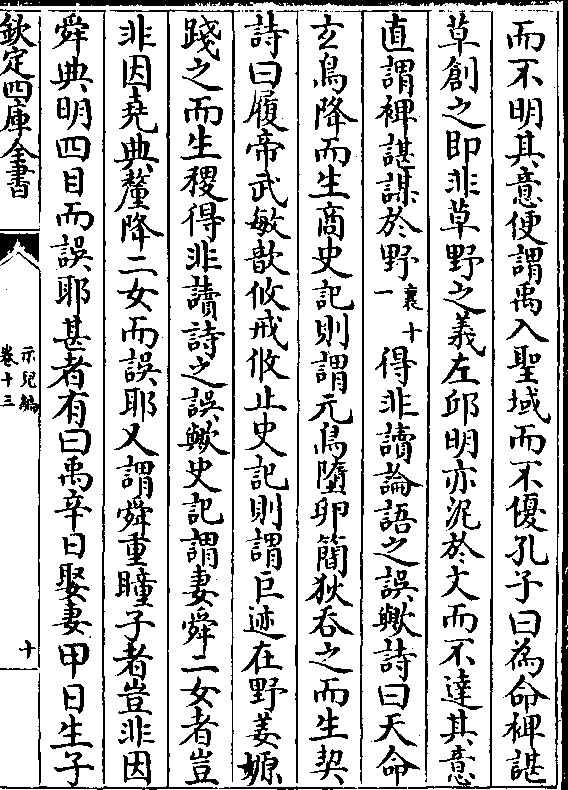 而不明其意便謂禹入聖域而不優孔子曰為命裨諶
草創之即非草野之義左邱明亦泥於文而不達其意
直謂裨諶謀於野襄十一得非讀論語之誤歟詩曰天命
玄鳥降而生商史記則謂元鳥墮卵簡狄吞之而生契
詩曰履帝武敏歆攸戒攸止史記則謂巨迹在野姜嫄
踐之而生稷得非讀詩之誤歟史記謂妻舜二女者豈
非因堯典釐降二女而誤耶又謂舜重瞳子者豈非因
舜典明四目而誤耶甚者有曰禹辛日娶妻甲日生子
欽定四庫全書
示兒編
卷十三
十